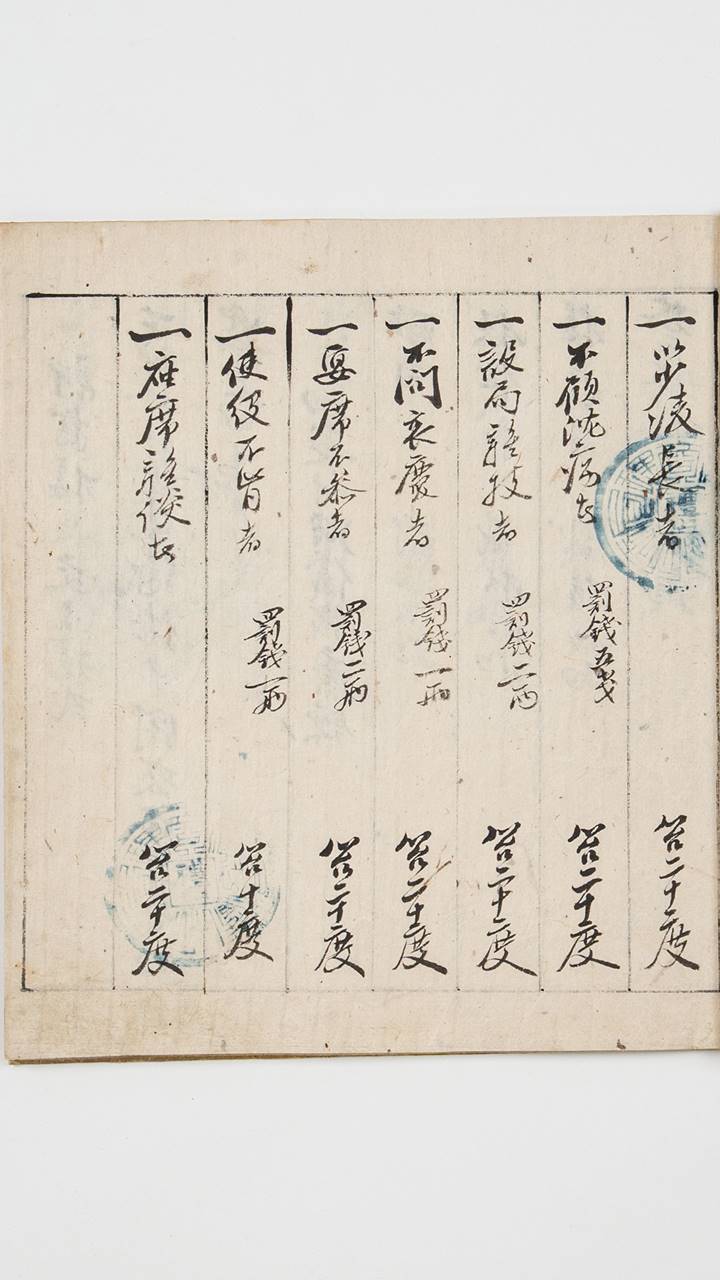 一 以少凌長者 笞二十度
一 不顧沈病者 罰錢五戔 笞二十度
一 設局雜技者 罰錢二両 笞二十度
一 不問哀慶者 罰錢一両 笞二十度
一 宴席不參者 罰錢二両 笞二十度
一 使役不肯者 罰錢一両 笞十度
一 座席雜談者 笞二十度